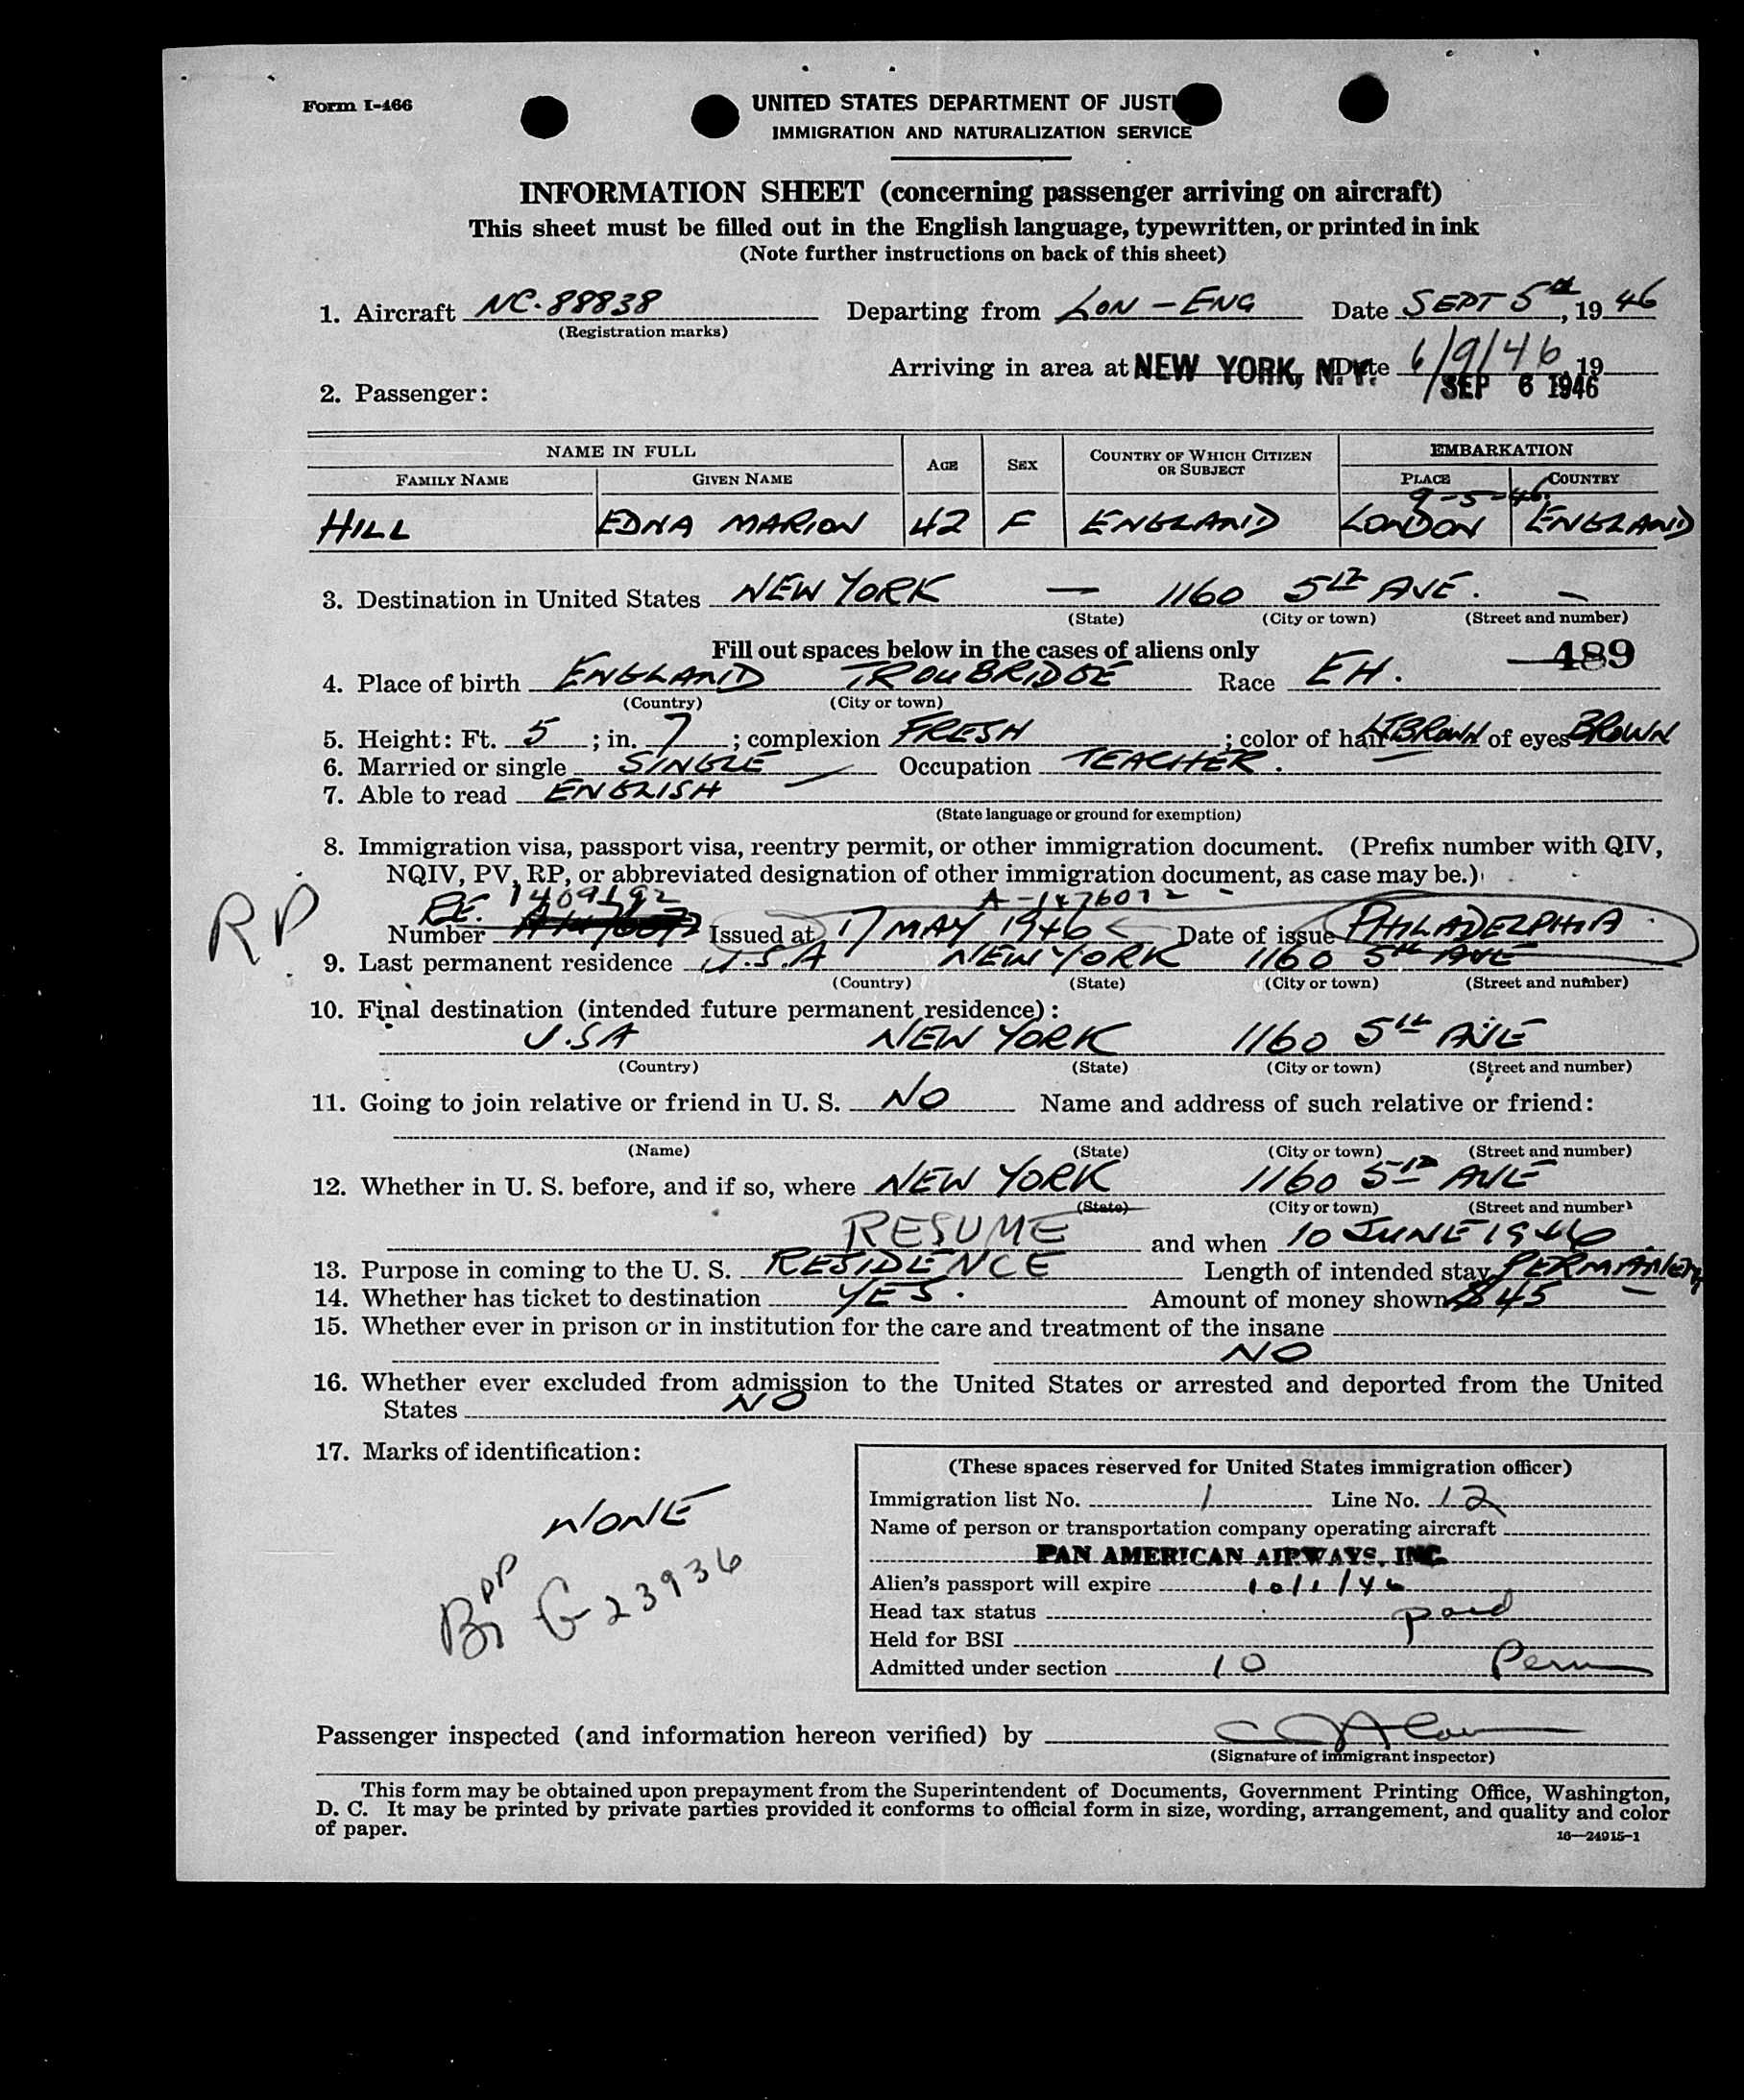 Form I-466
UNITED STATES DEPARTMENT OF JUSTI
IMMIGRATION AND NATURALIZATION SERVICE
INFORMATION SHEET (concerning passenger arriving on aircraft)
This sheet must be filled out in the English language, typewritten, or printed in ink
(Note further instructions on back of this sheet)
1. Aircraft NC-88838 Departing from LON - ENG Date SEPT 5th, 19 46
(Registration marks)
Arriving in area at NEW YORK, N.Y. Date 6/9/46 19
SEP 6 1946
2. Passenger:
NAME IN FULL AGE SEX COUNTRY OF WHICH CITIZEN OR SUBJECT EMBARKATION
FAMILY NAME GIVEN NAME PLACE COUNTRY
9-5-46
HILL EDNA MARION 42 F ENGLAND LONDON ENGLAND
3. Destination in United States NEW YORK — 1160 5th AVE. -
(State) (City or town) (Street and number)
Fill out spaces below in the cases of aliens only 489
4. Place of birth ENGLAND TROUBRIDGE Race EH.
(Country) (City or town)
5. Height: Ft. 5; in. 7; complexion FRESH; color of hair LTBROWN of eyes BROWN
6. Married or single SINGLE Occupation TEACHER.
7. Able to read ENGLISH
(State language or ground for exemption)
8. Immigration visa, passport visa, reentry permit, or other immigration document. (Prefix number with QIV,
NQIV, PV, RP, or abbreviated designation of other immigration document, as case may be.)
RP RE. 1409592 A-1476072 -
Number Issued at 17 MAY 1946 Date of issue PHILADELPHIA
9. Last permanent residence U.S.A NEW YORK 1160 5th AVE
(Country) (State) (City or town) (Street and number)
10. Final destination (intended future permanent residence):
U.SA NEW YORK 1160 5th AVE
(Country) (State) (City or town) (Street and number)
11. Going to join relative or friend in U. S. NO Name and address of such relative or friend:
(Name) (State) (City or town) (Street and number)
12. Whether in U. S. before, and if so, where NEW YORK 1160 5th AVE
(State) (City or town) (Street and number)
RESUME and when 10 JUNE 1946
13. Purpose in coming to the U. S. RESIDENCE Length of intended stay PERMANENT
14. Whether has ticket to destination YES. Amount of money shown $45
15. Whether ever in prison or in institution for the care and treatment of the insane
NO
16. Whether ever excluded from admission to the United States or arrested and deported from the United
States NO
17. Marks of identification:
NONE
Br PP G-23936
(These spaces reserved for United States immigration officer)
Immigration list No. 1 Line No. 12
Name of person or transportation company operating aircraft
PAN AMERICAN AIRWAYS, INC.
Alien's passport will expire 10/1/46
Head tax status paid
Held for BSI
Admitted under section 10 Perm
Passenger inspected (and information hereon verified) by
(Signature of immigrant inspector)
This form may be obtained upon prepayment from the Superintendent of Documents, Government Printing Office, Washington,
D. C. It may be printed by private parties provided it conforms to official form in size, wording, arrangement, and quality and color
of paper.
16—24915-1